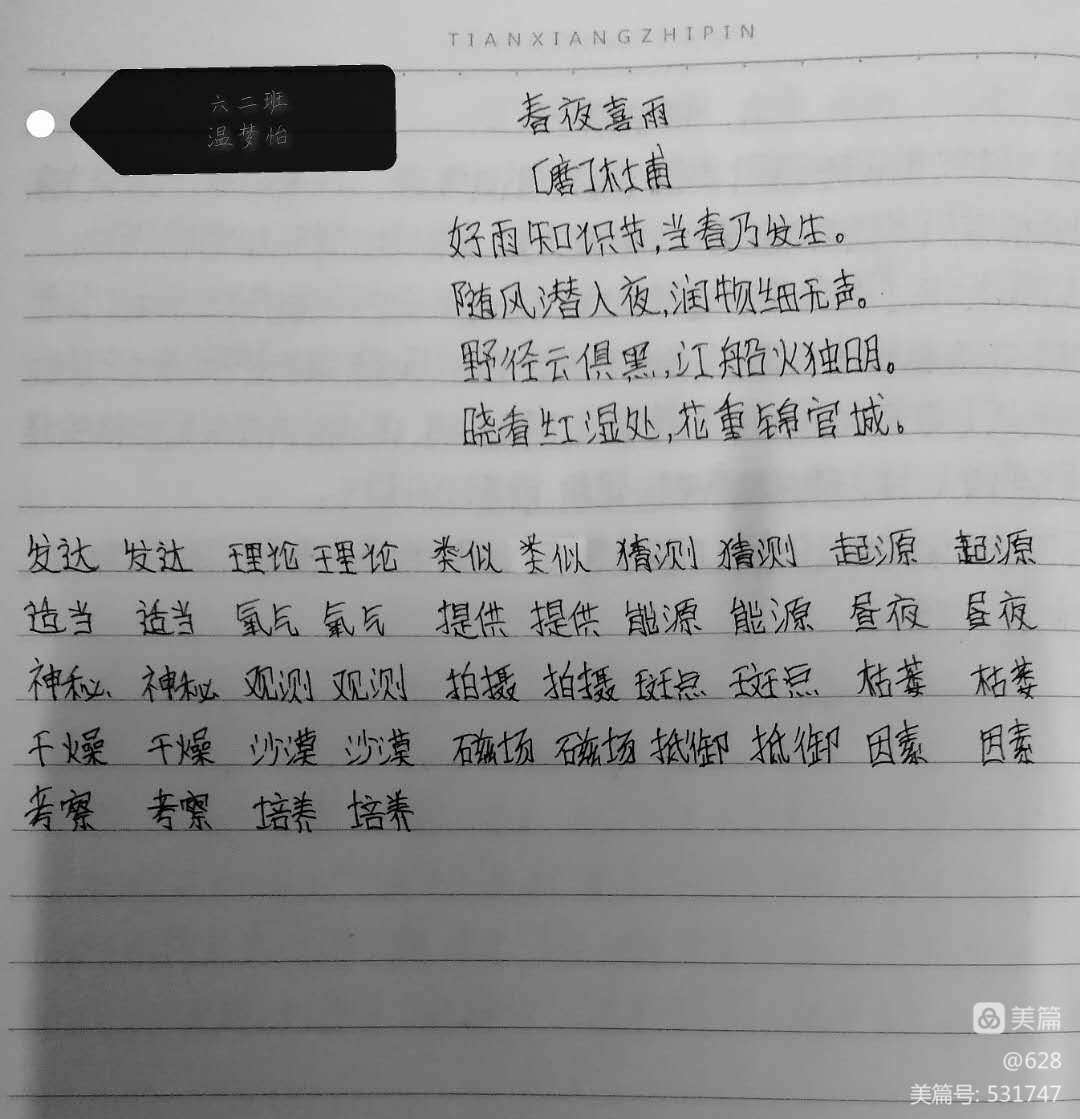 TIANXIANGZHIPIN
六二班
温梦怡
春夜喜雨
[唐]杜甫
好雨知识节,当春乃发生。
随风潜入夜,润物细无声。
野径云俱黑,江船火独明。
晓看红湿处,花重锦官城。
发达 发达 理论 理论 类似 类似 猜测 猜测 起源 起源
适当 适当 氧气 氧气 提供 提供 能源 能源 昼夜 昼夜
神秘 神秘 观测 观测 拍摄 拍摄 斑点 斑点 枯萎 枯萎
干燥 干燥 沙漠 沙漠 磁场 磁场 抵御 抵御 因素 因素
考察 考察 培养 培养
美篇
@628
美篇号: 531747